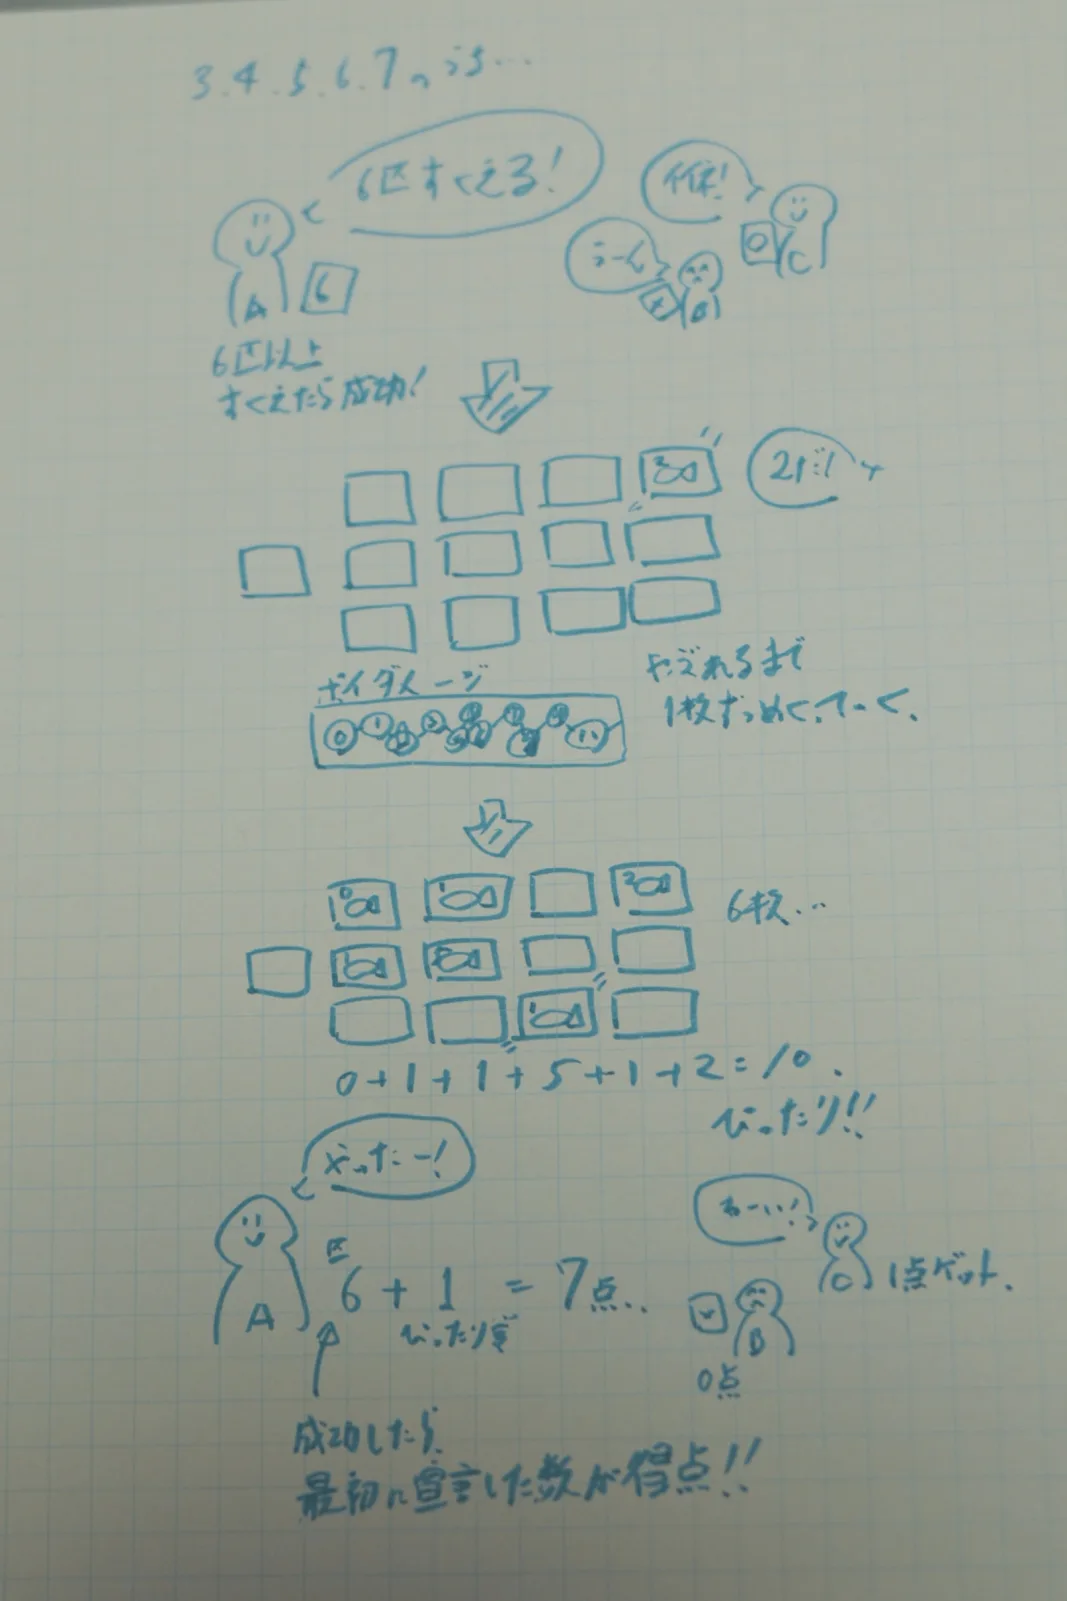 3.4.5.6.7のうち…
6匹すくえる!
信!
うーん
A
6
O
C
×
B
6匹以上
すくえたら成功!
2だ!
やぶれるまで
1枚ずつめくっていく.
ポイダメージ
0 1
11
0 1 2
6枚…
1 5
1
0+1+1+5+1+2=10.
ぴったり!!
やったー!
わーい!
匹
6+1=7点..
ぴったり賞
A
C 1点ゲット.
×
B
0点
成功したら
最初に宣言した数が得点!!